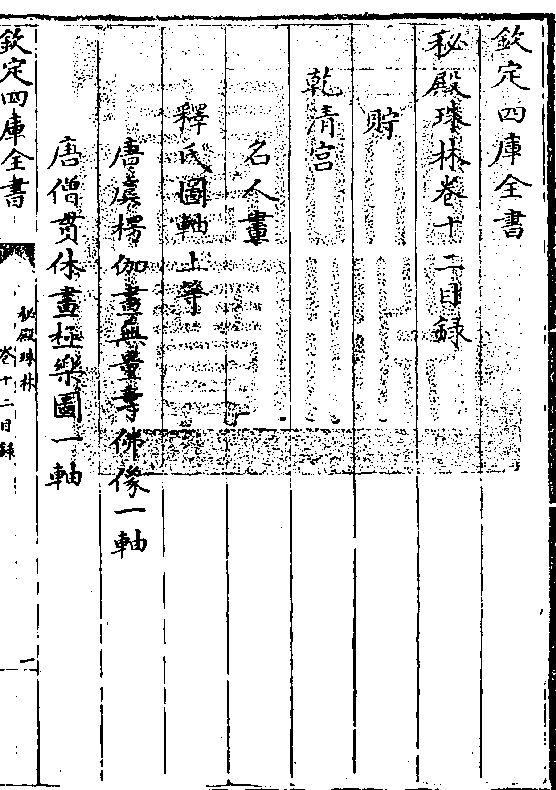 欽定四庫全書
秘殿珠林卷十二目録
貯
乾清宮
名人畫
釋氏圖軸上等
唐盧楞伽畫無量壽佛像一軸
唐僧貫休畫極樂圖一軸
欽定四庫全書
秘殿珠林
卷十二目録
一